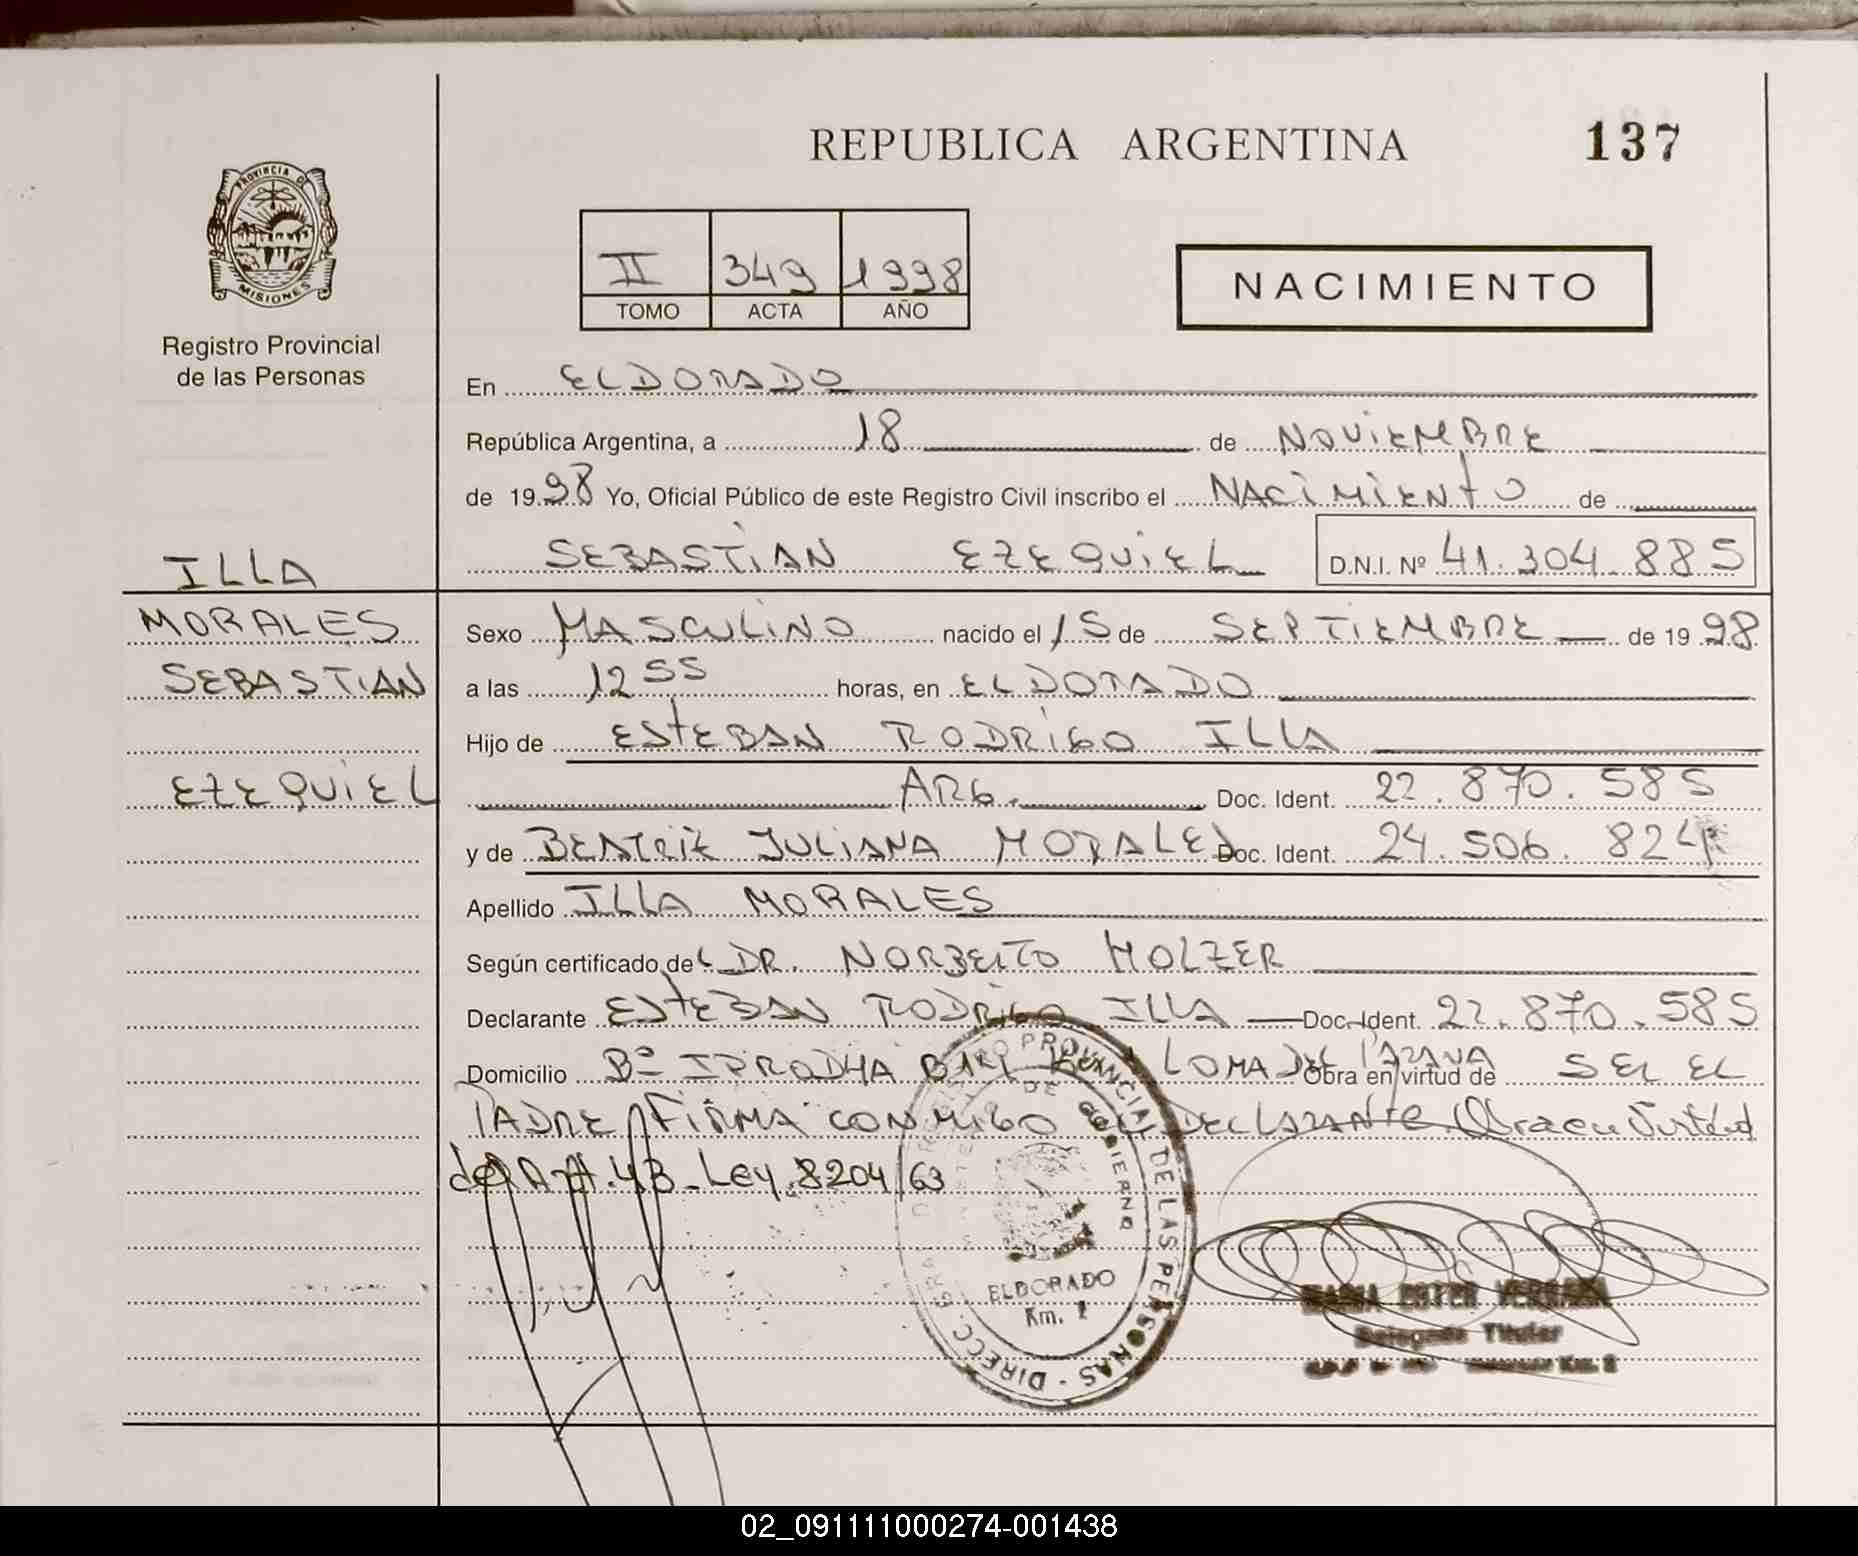 REPUBLICA ARGENTINA
137
PROVINCIA DE
MISIONES
Registro Provincial
de las Personas
II 349 1998
TOMO ACTA AÑO
NACIMIENTO
En ELDORADO
República Argentina, a 18 de NOVIEMBRE
de 1998 Yo, Oficial Público de este Registro Civil inscribo el NACIMIENTO de
SEBASTIAN EZEQUIEL D.N.I. Nº 41.304.885
ILLA
MORALES
SEBASTIAN
EZEQUIEL
Sexo MASCULINO nacido el 15 de SEPTIEMBRE de 1998
a las 12 55 horas, en ELDORADO
Hijo de ESTEBAN RODRIGO ILLA
ARG. Doc. Ident. 22.870.585
y de BEATRIZ JULIANA MORALES Doc. Ident. 24.506.824
Apellido ILLA MORALES
Según certificado del DR. NORBERTO HOLZER
Declarante ESTEBAN RODRIGO ILLA Doc. Ident. 22.870.585
Domicilio Bº IPRODHA LOMA DEL PARANA Obra en virtud de SER EL
PADRE FIRMA CONMIGO EL DECLARANTE Obra en Virtud
del Art. 43 - Ley 8204/63
DIRECC. GRAL. REGISTRO PROVINCIAL DE LAS PERSONAS
DE GOBIERNO
ELDORADO
Km. 2
MARIA ESTER
Delegada Titular
Km. 2
02_091111000274-001438